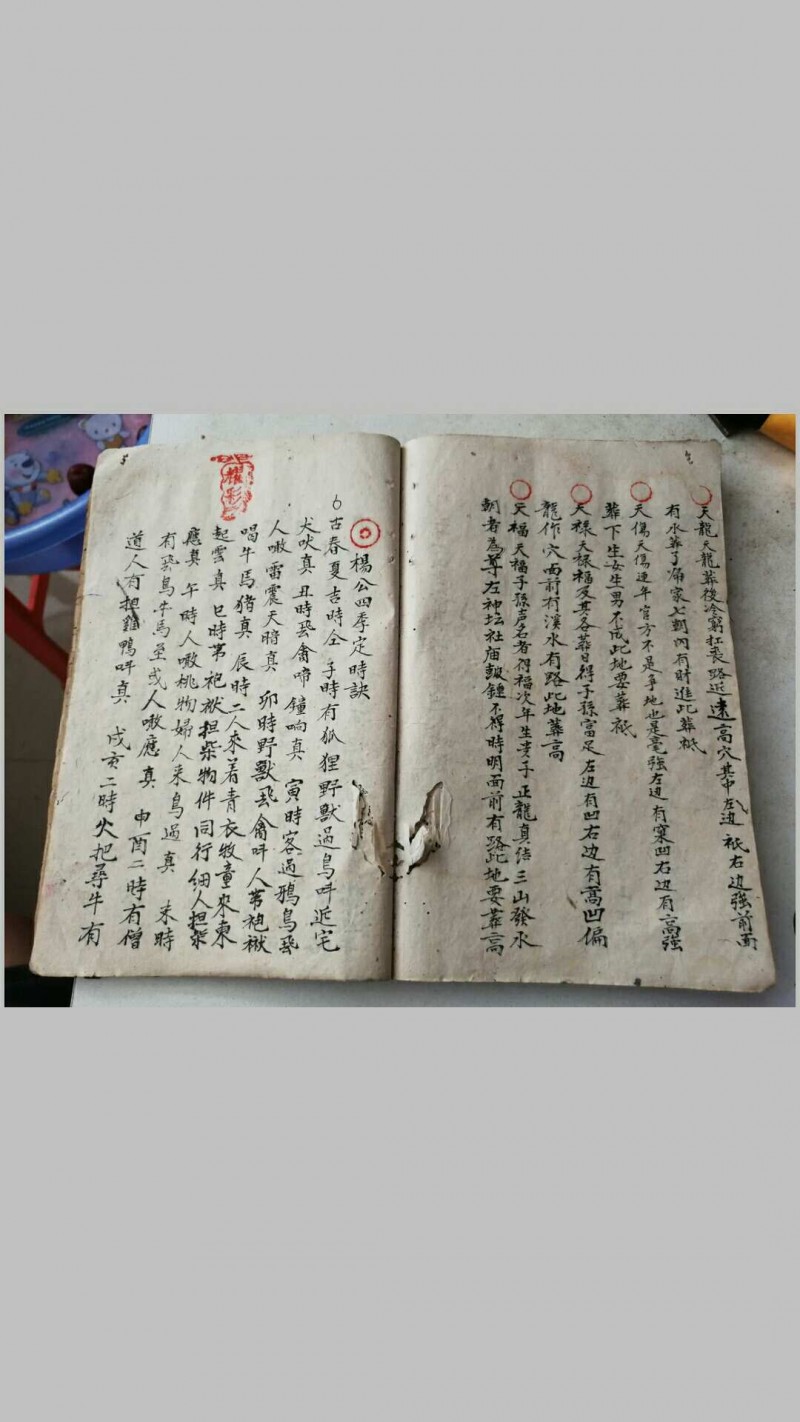 天龍天龍葬後冷窮扛喪路近遠高穴其中左边 祇右边強前面
有水葬了滿家七朝內有財進此葬祇
天傷天傷連年官方不是爭地也是毫強左边有窠凹右边有高強
葬下生女生男不成此地要葬祇
天禄天禄福及其各葬日得子孫富足左边有凹右边有高凹偏
龍作穴面前有濱水有路此地葬高
天福天福子孫声名者得福次年生貴子正龍真結三山發水
朝者為尊左神坛社庙皷鍾不得時明面前有路此地要葬高
楊公四季定時訣
6古春夏吉時仝 子時有狐狸野獸過鳥呌近宅
犬吠真 丑時飛禽啼鐘响真 寅時客過鴉鳥飛
人噭雷震天暗真 卯時野獸飛禽呌人著袍袱
唱牛馬猪真 辰時二人來着青衣牧童來東
起雲真 巳時著袍袱担柴物件同行細人担柴
應真 午時人噭桃物婦人來鳥過真 未時
有飛鳥牛馬至或人噭應真 申酉二時有僧
道人有担雞鴨呌真 戌亥二時火把尋牛有